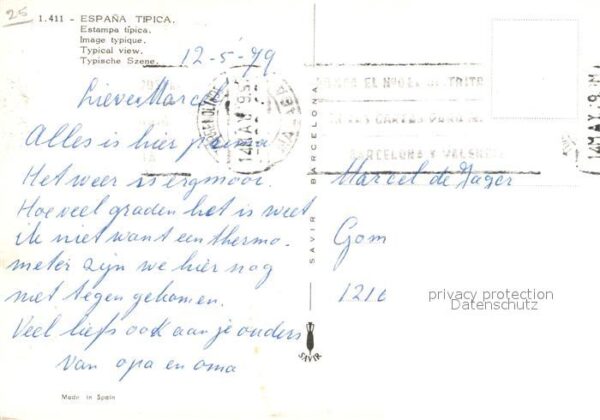 25
1.411 - ESPAÑA TIPICA.
Estampa típica.
Image typique.
Typical view.
Typische Szene.
12-5-'79
Lieve Marcel
Alles is hier prima
Het weer is erg mooi.
Hoeveel graden het is weet
ik niet want een thermo-
meter zijn we hier nog
niet tegen gekomen.
Veel liefs ook aan je ouders
van opa en oma
Made in Spain
SAVIR BARCELONA
SAVIR
14 MAY 79
BARCELONA Y VALENCIA
14 MAY
Marcel de Jager
privacy protection
Datenschutz